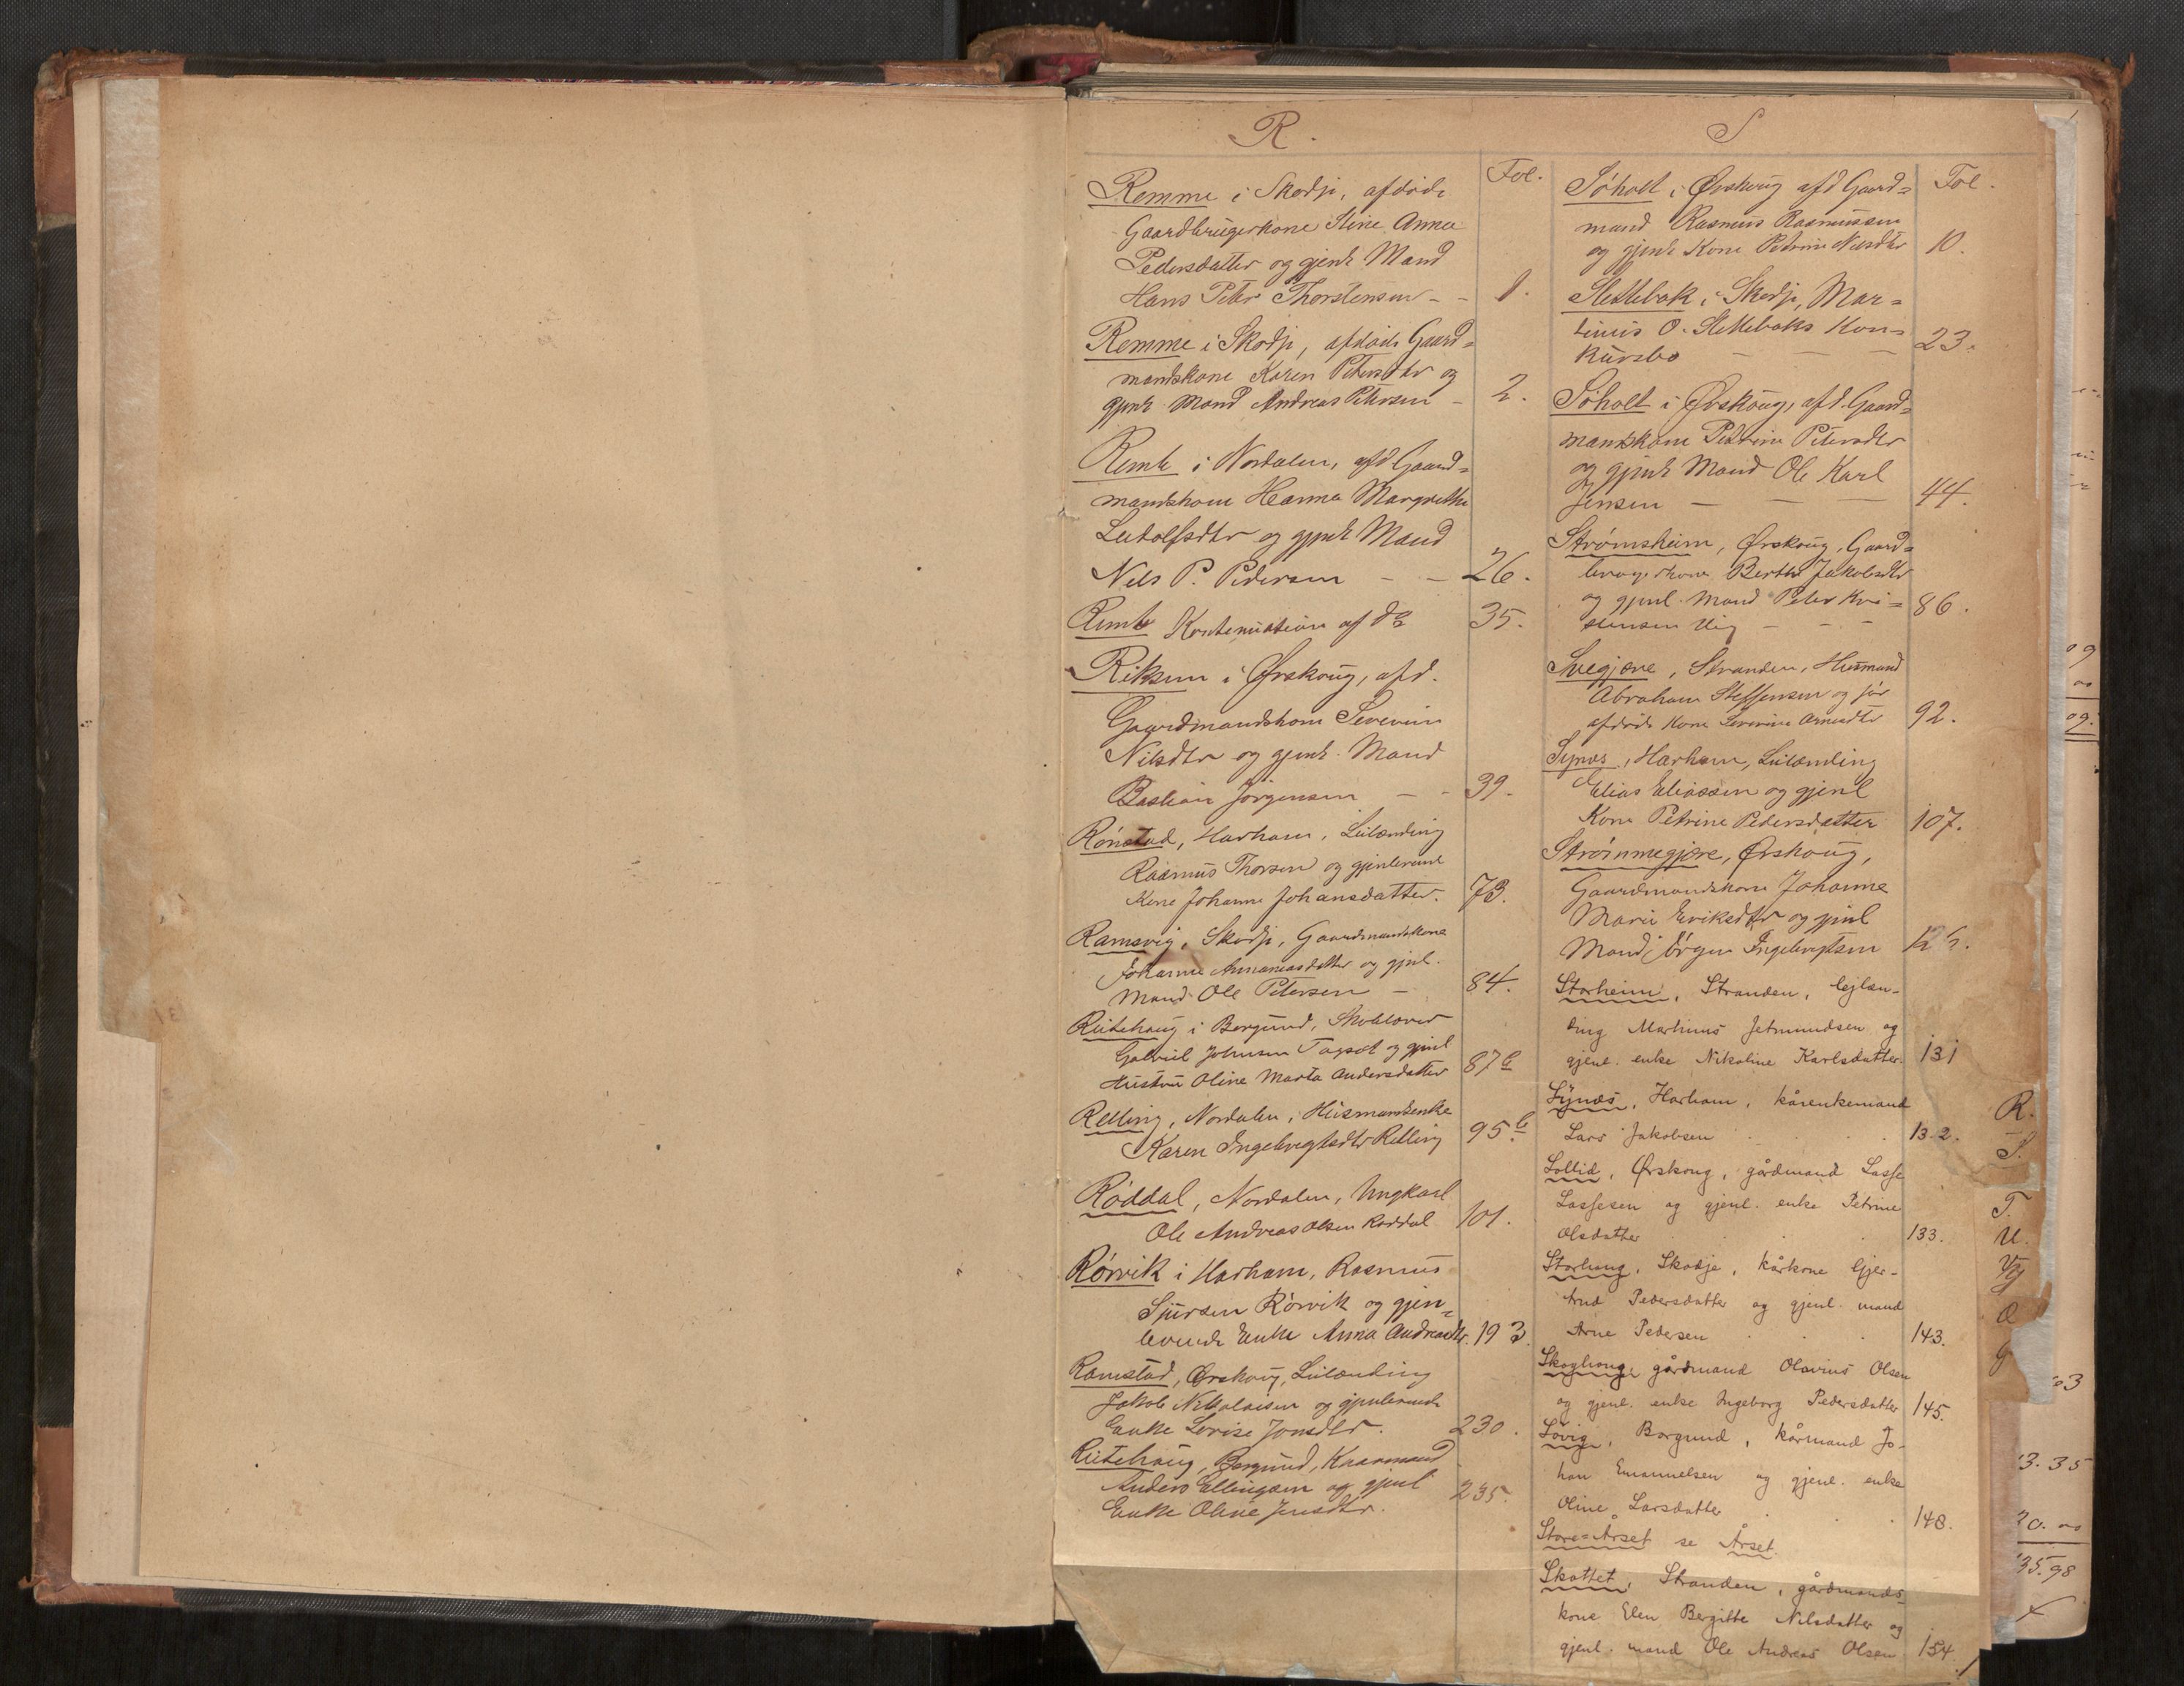 R.
Fol.
Remme i Skodje, afdöde
Gaardbrugerkone Stine Anna
Pedersdatter og gjenl Mand
Hans Peter Thorstensen - - 1.
Remme i Skodje, afdöde Gaard=
mandskone Karen Petersdtr og
gjenl Mand Andreas Petersen - 2.
Remb i Nordalen, afd Gaard=
mandskone Hanna Margrethe
Ludolfsdtr og gjenl Mand
Nils P. Pedersen - - 26.
Remb Kontinuation af do 35.
Riksem i Ørskoug, afd.
Gaardmandskone Severine
Nilsdtr og gjenl. Mand
Bastian Jörgensen - - 39.
Rönstad, Harham, Leilænding
Rasmus Thorsen og gjenlevende
Kone Johanne Johansdatter. 73.
Ramsvig, Skodje, Gaardmandskone
Johanne Annaniasdatter og gjenl.
Mand Ole Petersen - 84.
Rütehoug i Borgund, Skolelærer
Gabriel Johnsen og gjenl
Hustru Oline Marta Andersdatter 87b
Relling, Nordalen, Husmandsenke
Karen Ingebregtsdtr Relling 95b.
Röddal, Nordalen, Ungkarl
Ole Andreas Olsen Röddal 101.
Rörvik i Harham, Rasmus
Sjursen Rörvik og gjen-
levende Enke Anna Andreasdtr. 193.
Ramstad, Ørskoug, Leilænding
Jakob Nikolaisen og gjenlevende
Enke Lovise Jonsdtr. 230.
Rütehoug, Borgund, Kaarmand
Anders Ellingsen og gjenl
Enke Oline Jensdtr. 235.
S
Fol.
Söholt i Ørskoug afd Gaard=
mand Rasmus Rasmussen
og gjenl Kone Petrine Nilsdtr 10.
Slettebak i Skodje, Mar=
tinus O. Slettebaks Kon=
kursbo - - - 23.
Söholt i Ørskoug, afd. Gaard=
mandskone Petrine Petersdtr
og gjenl Mand Ole Karl
Jensen - - - 44.
Strømsheim, Ørskoug, Gaard=
brugerkone Berthe Jakobsdtr
og gjenl. Mand Peter Kri=
stensen Vig - - - 86.
Svegjære, Stranden, Husmand
Abraham Steffensen og för
afdöde Kone Severine Arnesdtr 92.
Synes, Harham, Leilænding
Elias Eliassen og gjenl
Kone Petrine Pedersdatter 107.
Strömmegjære, Ørskoug,
Gaardmandskone Johanne
Marie Eriksdtr og gjenl
Mand Jörgen Ingebregtsen
Storheim, Stranden, lejlæn-
ding Martinus Jetmundsen og
gjenl. enke Nikoline Karlsdatter. 131
Synæs, Harham, kårenkemand
Lars Jakobsen . . 132.
Sollid, Ørskoug, gårdmand Lasse
Lassesen og gjenl. enke Petrine
Olsdatter . . . 133.
Storhaug, Skodje, kårkone Gjer-
trud Pedersdatter og gjenl. mand
Arne Pedersen . . . 143.
Skoghaug, gårdmand Olavius Olsen
og gjenl. enke Ingeborg Pedersdatter 145.
Søvig, Borgund, kårmand Jo-
han Emanuelsen og gjenl. enke
Oline Larsdatter . . 148.
Store=Årset se Årset.
Skottet, Stranden, gårdmands-
kone Elen Bergitte Nilsdatter og
gjenl. mand Ole Andreas Olsen 154.
R.
S.
T.
U.
Ø